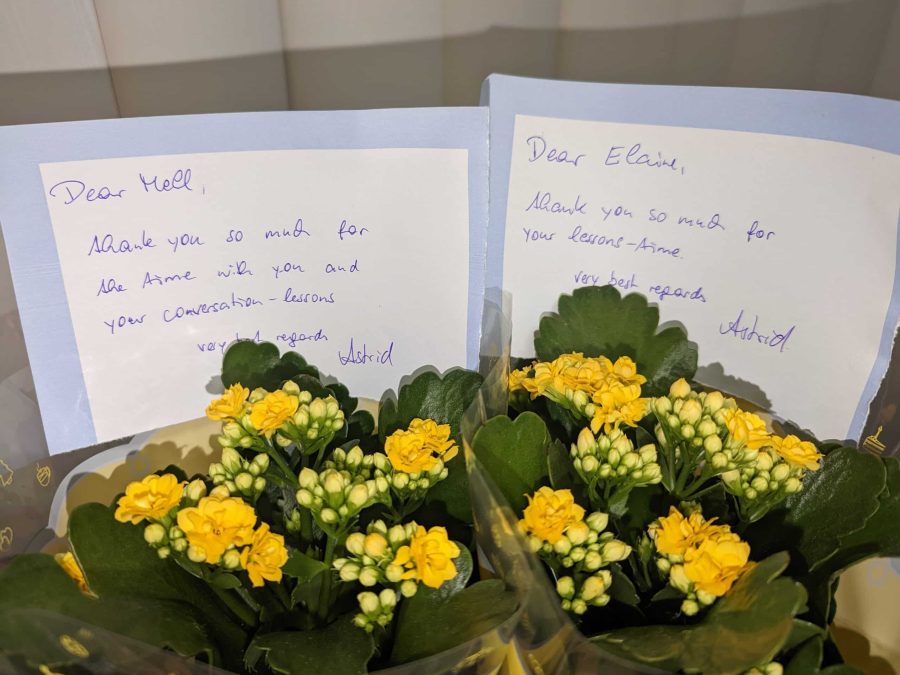 Dear Mell,
thank you so much for
the time with you and
your conversation-lessons
very best regards
Astrid
Dear Elaine,
thank you so much for
your lessons-time.
very best regards
Astrid